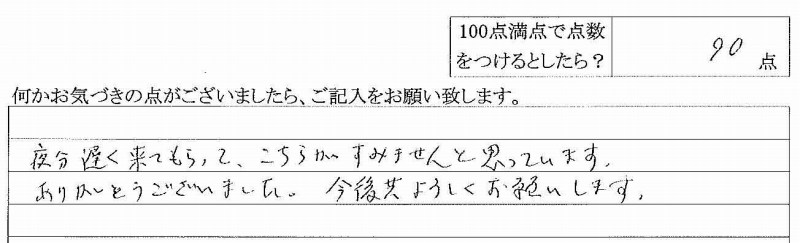 100点満点で点数
をつけるとしたら？
90点
何かお気づきの点がございましたら、ご記入をお願い致します。
夜分遅く来てもらって、こちらがすみませんと思っています。
ありがとうございました。 今後共よろしくお願いします。